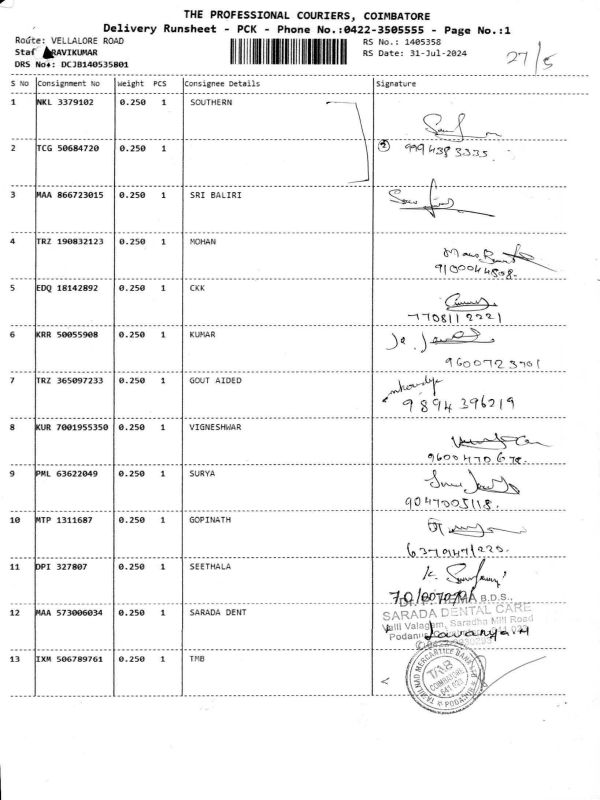 THE PROFESSIONAL COURIERS, COIMBATORE
Delivery Runsheet - PCK - Phone No.:0422-3505555 - Page No.:1
Route: VELLALORE ROAD
RS No.: 1405358
27/5
Staf RAVIKUMAR
RS Date: 31-Jul-2024
DRS No: DCJB140535801
S No Consignment No Weight PCS Consignee Details Signature
1 NKL 3379102 0.250 1 SOUTHERN
2 TCG 50684720 0.250 1
3 MAA 866723015 0.250 1 SRI BALIRI
4 TRZ 190832123 0.250 1 MOHAN
9100044508.
5 EDQ 18142892 0.250 1 CKK
7708112221
6 KRR 50055908 0.250 1 KUMAR
9600723701
7 TRZ 365097233 0.250 1 GOUT AIDED
9894396219
8 KUR 7001955350 0.250 1 VIGNESHWAR
9 PML 63622049 0.250 1 SURYA
9047005118.
10 MTP 1311687 0.250 1 GOPINATH
11 DPI 327807 0.250 1 SEETHALA
B.D.S.,
12 MAA 573006034 0.250 1 SARADA DENT
SARADA DENTAL CARE
Valli Valagam, Saradha Mill Road
Lavanya.M
13 IXM 506789761 0.250 1 TMB
TAMILNAD MERCANTILE BANK
TMB
COIMBATORE